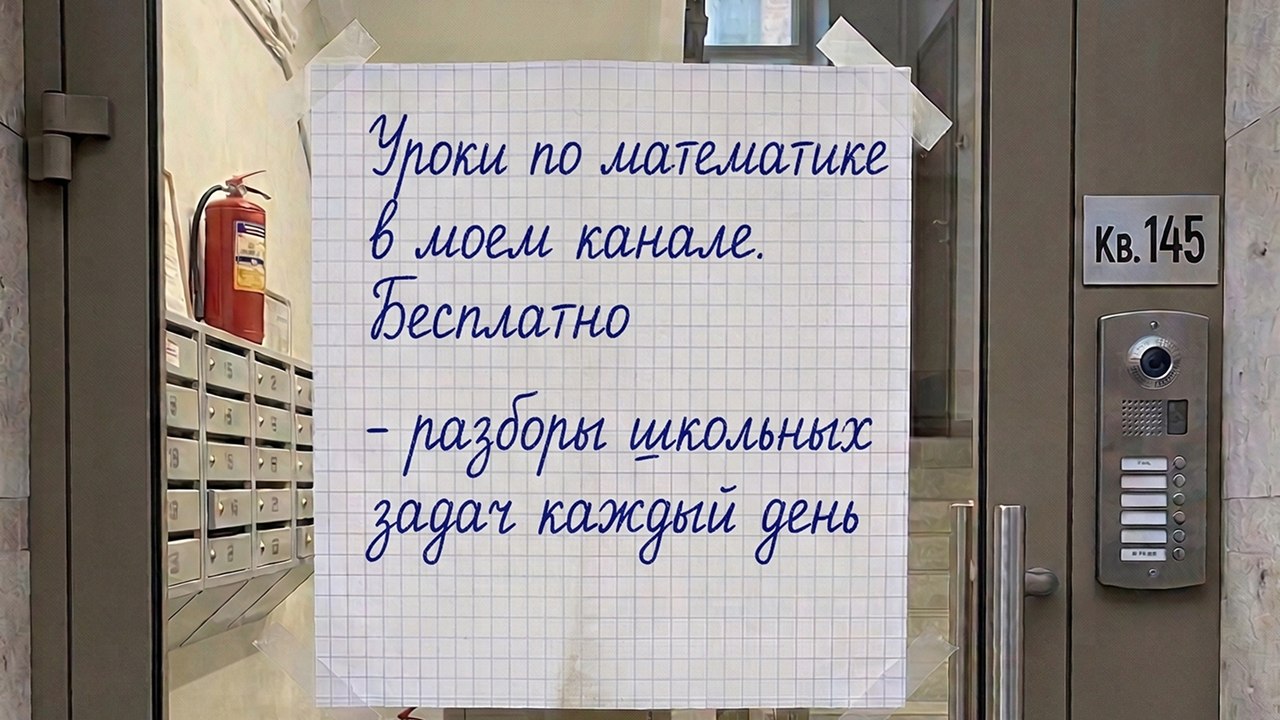 Уроки по математике
в моем канале.
Бесплатно
- разборы школьных
задач каждый день
Кв. 145